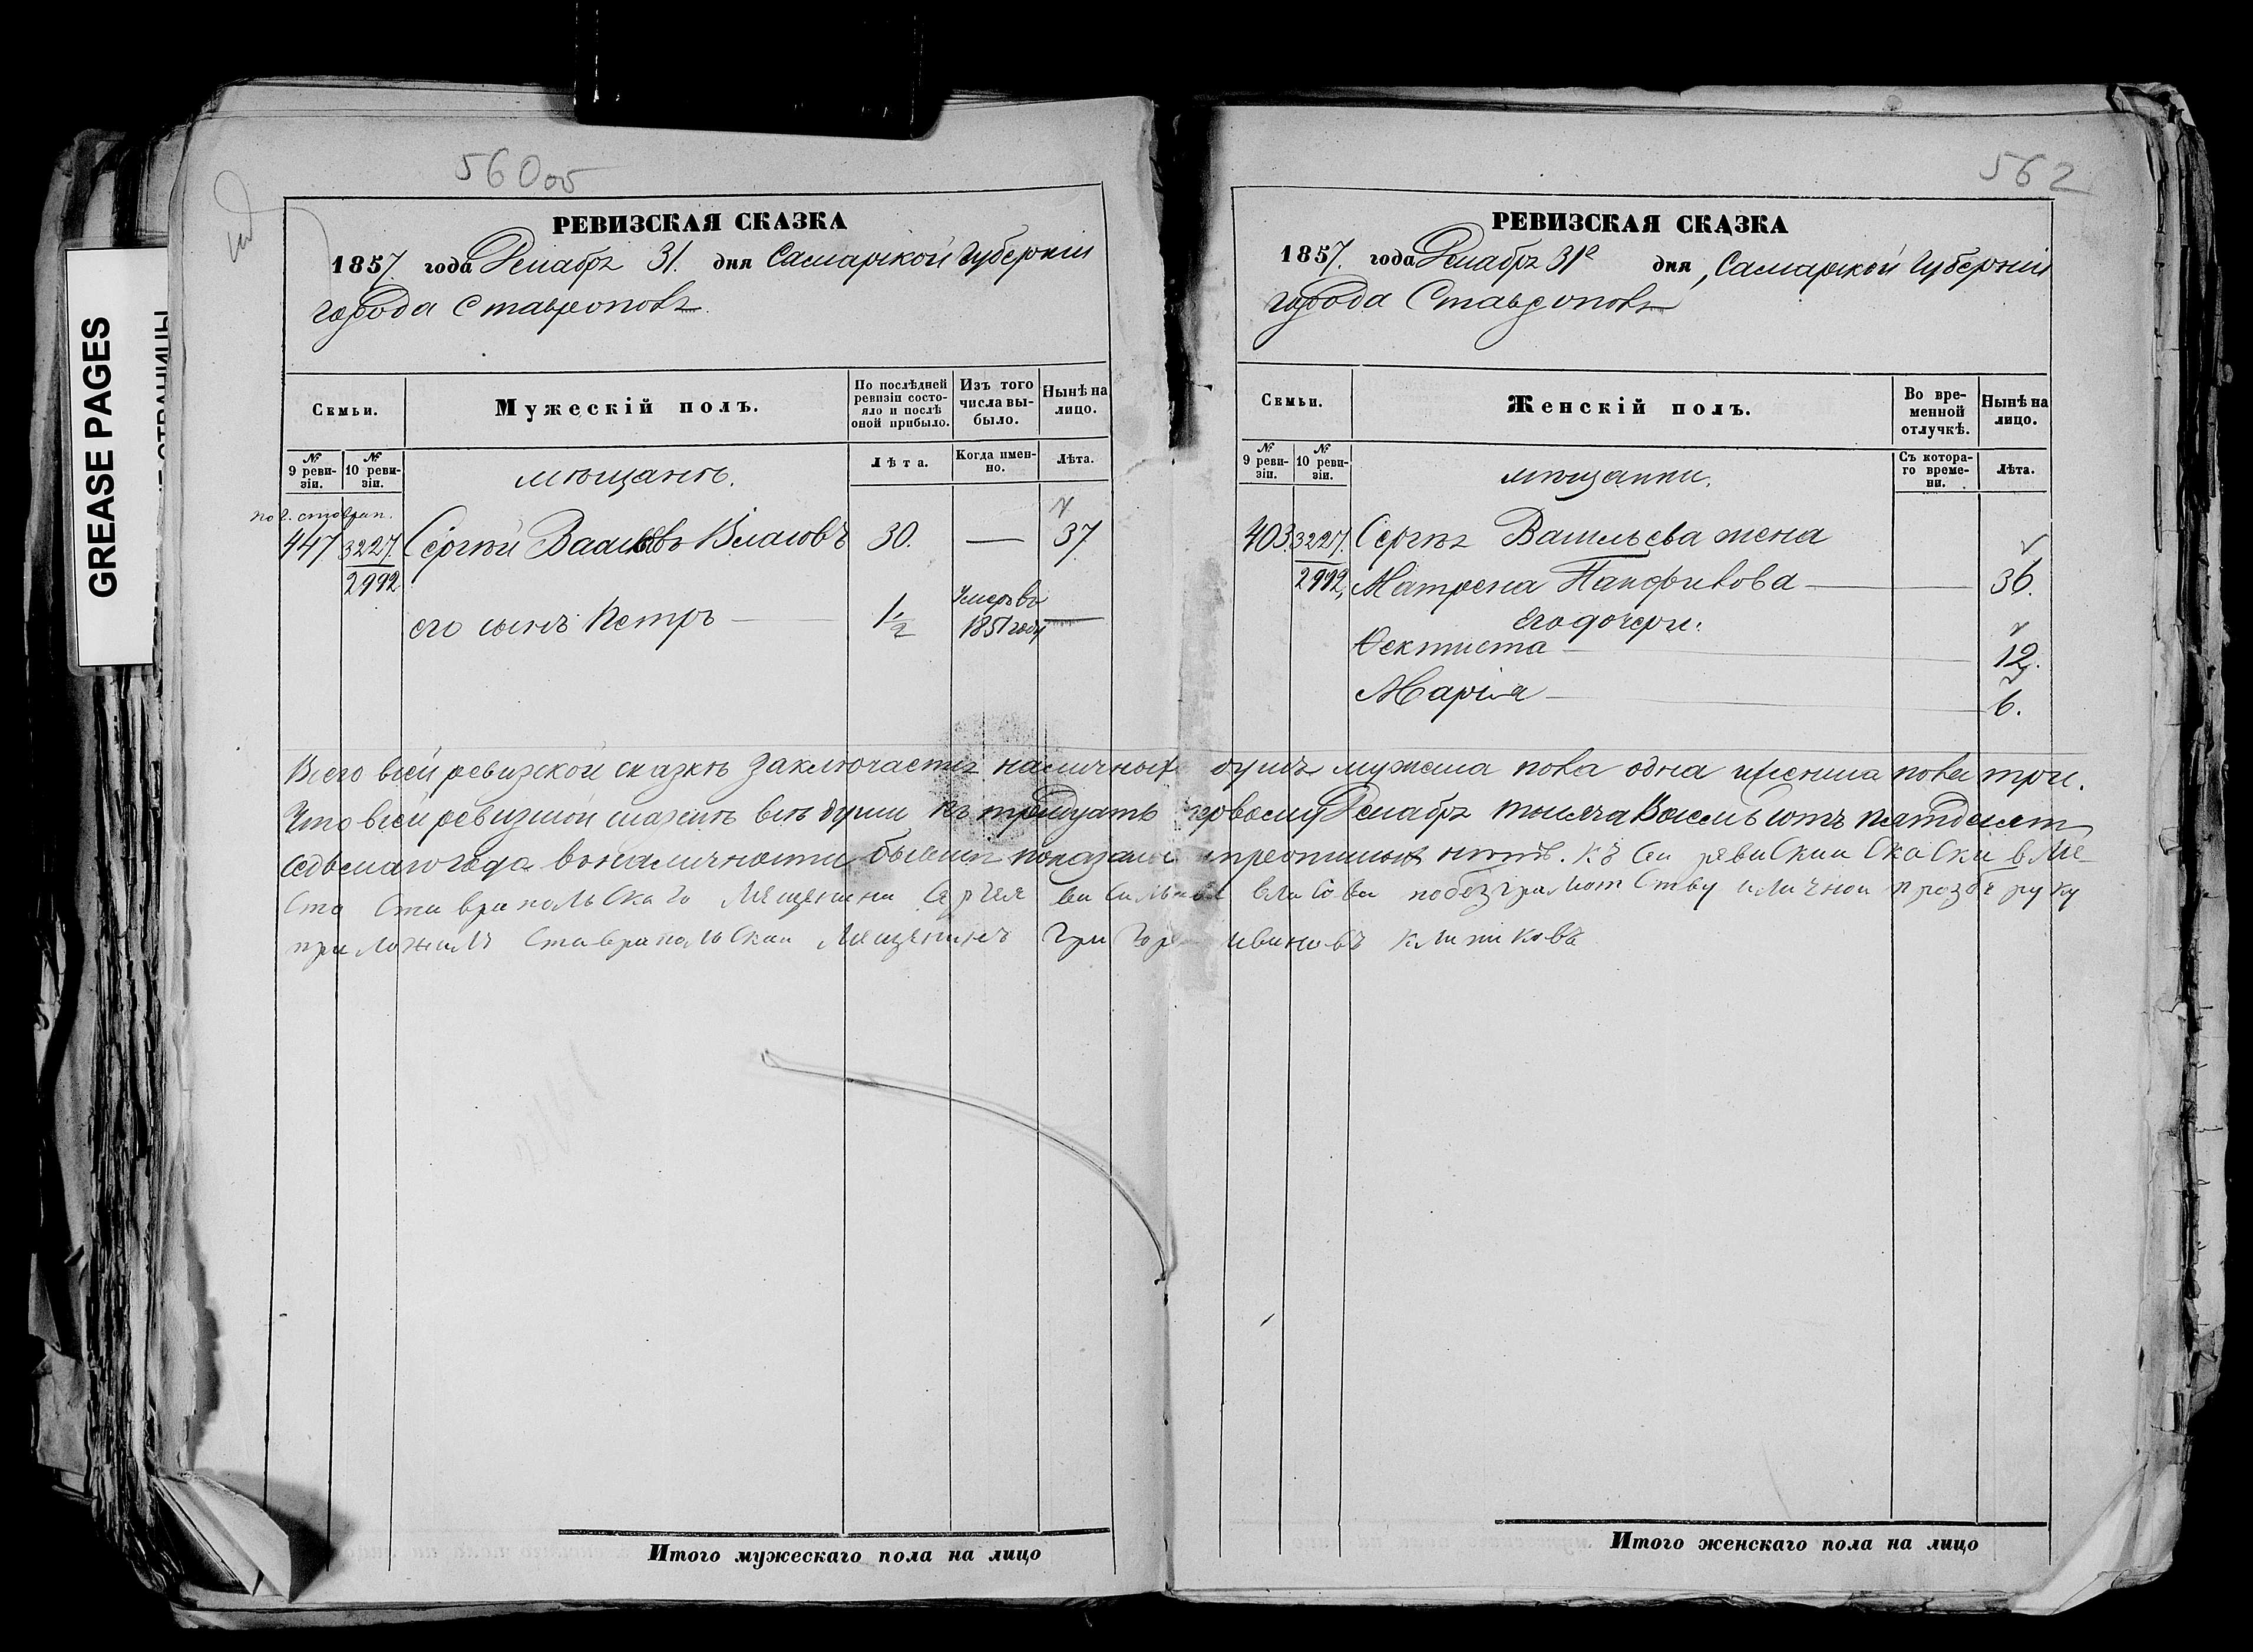 GREASE PAGES
560об
РЕВИЗСКАЯ СКАЗКА
1857. года Декабря 31. дня Самарской Губернии
города Ставрополя.
Семьи.
Мужескій полъ.
По послѣдней ревизіи состояло и послѣ оной прибыло.
Изъ того числа выбыло.
Нынѣ на лицо.
№ 9 ревизіи.
№ 10 ревизіи.
мѣщанѣ.
Лѣта.
Когда именно.
Лѣта.
по г. ставроп.
447 3227. Сергѣй Васильевъ Власовъ 30. — 37.
2992
его сынъ Петръ — 1/2 Умеръ въ 1851 году —
562
РЕВИЗСКАЯ СКАЗКА
1857. года Декабря 31го дня, Самарской Губерніи
города Ставрополя
Семьи.
Женскій полъ.
Во временной отлучкѣ.
Нынѣ на лицо.
№ 9 ревизіи.
№ 10 ревизіи.
мѣщанки.
Съ котораго времени.
Лѣта.
403. 3227. Сергѣя Васильева жена
2992, Матрена Панфилова — 36.
Его дочери:
Фектиста — 12.
Марія — 6.
Всего всей ревизской сказкѣ заключается наличныхъ душъ мужеска пола одна и женска пола три.
Что всей ревизской сказкѣ всѣ души къ тридцать первому Декабря тысяча Восемьсотъ пятдесят
седьмаго года в наличности бывши показаны и прописныхъ нѣтъ. Къ сей ревиской Скаски вМе-
сто Ставрапольскаго Мещенина Сергея васильева власова побезграмотству иличной прозбе руку
приложилъ Ставрапольской Мещенинъ Григорей ивановъ
Итого мужескаго пола на лицо
Итого женскаго пола на лицо